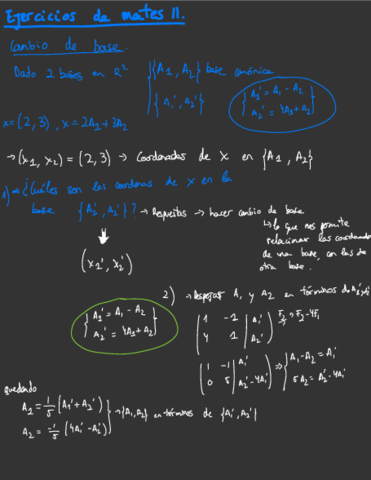 Ejercicios de mates II.
Cambio de base.
Dado 2 bases en R² {{A1, A2} base canónica
{A1', A2'}
{A1' = A1 - A2
A2' = 4A1 + A2}
x=(2,3), x=2A1+3A2
→ (x1, x2) = (2,3) → Coordenadas de x en {A1, A2}
1) ⇒ ¿Cuáles son las coordenas de x en la
base {A1', A2'}? → Respuestas → hacer cambio de base
↳ lo que nos permite
relacionar las coordenadas
de una base, con las de
otra base.
(x1', x2')
2) → Despejar A1 y A2 en términos de A1', A2'
{A1' = A1 - A2
A2' = 4A1 + A2}
(1 -1 | A1'
4 1 | A2') F2 → F2 - 4F1
(1 -1 | A1'
0 5 | A2' - 4A1') ⇒ {A1 - A2 = A1'
5A2 = A2' - 4A1'
quedando
A1 = 1/5 (A1' + A2')
A2 = -1/5 (4A1' - A2') } → {A1, A2} en términos de {A1', A2'}